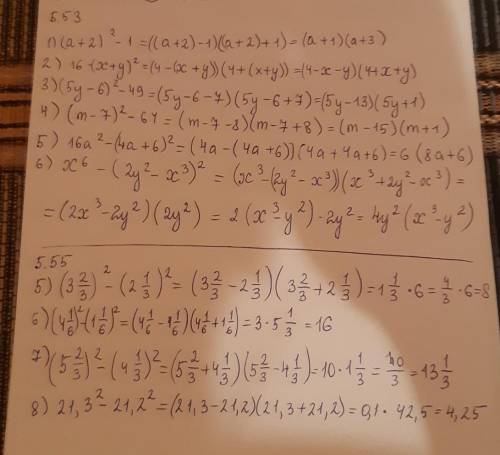 5.53
1) (a+2)² - 1 = ((a+2)-1)((a+2)+1) = (a+1)(a+3)
2) 16-(x+y)² = (4-(x+y))(4+(x+y)) = (4-x-y)(4+x+y)
3) (5y-6)² - 49 = (5y-6-7)(5y-6+7) = (5y-13)(5y+1)
4) (m-7)² - 64 = (m-7-8)(m-7+8) = (m-15)(m+1)
5) 16a² - (4a+6)² = (4a-(4a+6))(4a+4a+6) = 6(8a+6)
6) x⁶ - (2y² - x³)² = (x³-(2y² - x³))(x³+2y² - x³) =
= (2x³-2y²)(2y²) = 2(x³-y²)·2y² = 4y²(x³-y²)
5.55
5) (3 2/3)² - (2 1/3)² = (3 2/3 - 2 1/3)(3 2/3 + 2 1/3) = 1 1/3 · 6 = 4/3 · 6 = 8
6) (4 1/6)² - (1 1/6)² = (4 1/6 - 1 1/6)(4 1/6 + 1 1/6) = 3 · 5 1/3 = 16
7) (5 2/3)² - (4 1/3)² = (5 2/3 + 4 1/3)(5 2/3 - 4 1/3) = 10 · 1 1/3 = 40/3 = 13 1/3
8) 21,3² - 21,2² = (21,3-21,2)(21,3+21,2) = 0,1 · 42,5 = 4,25